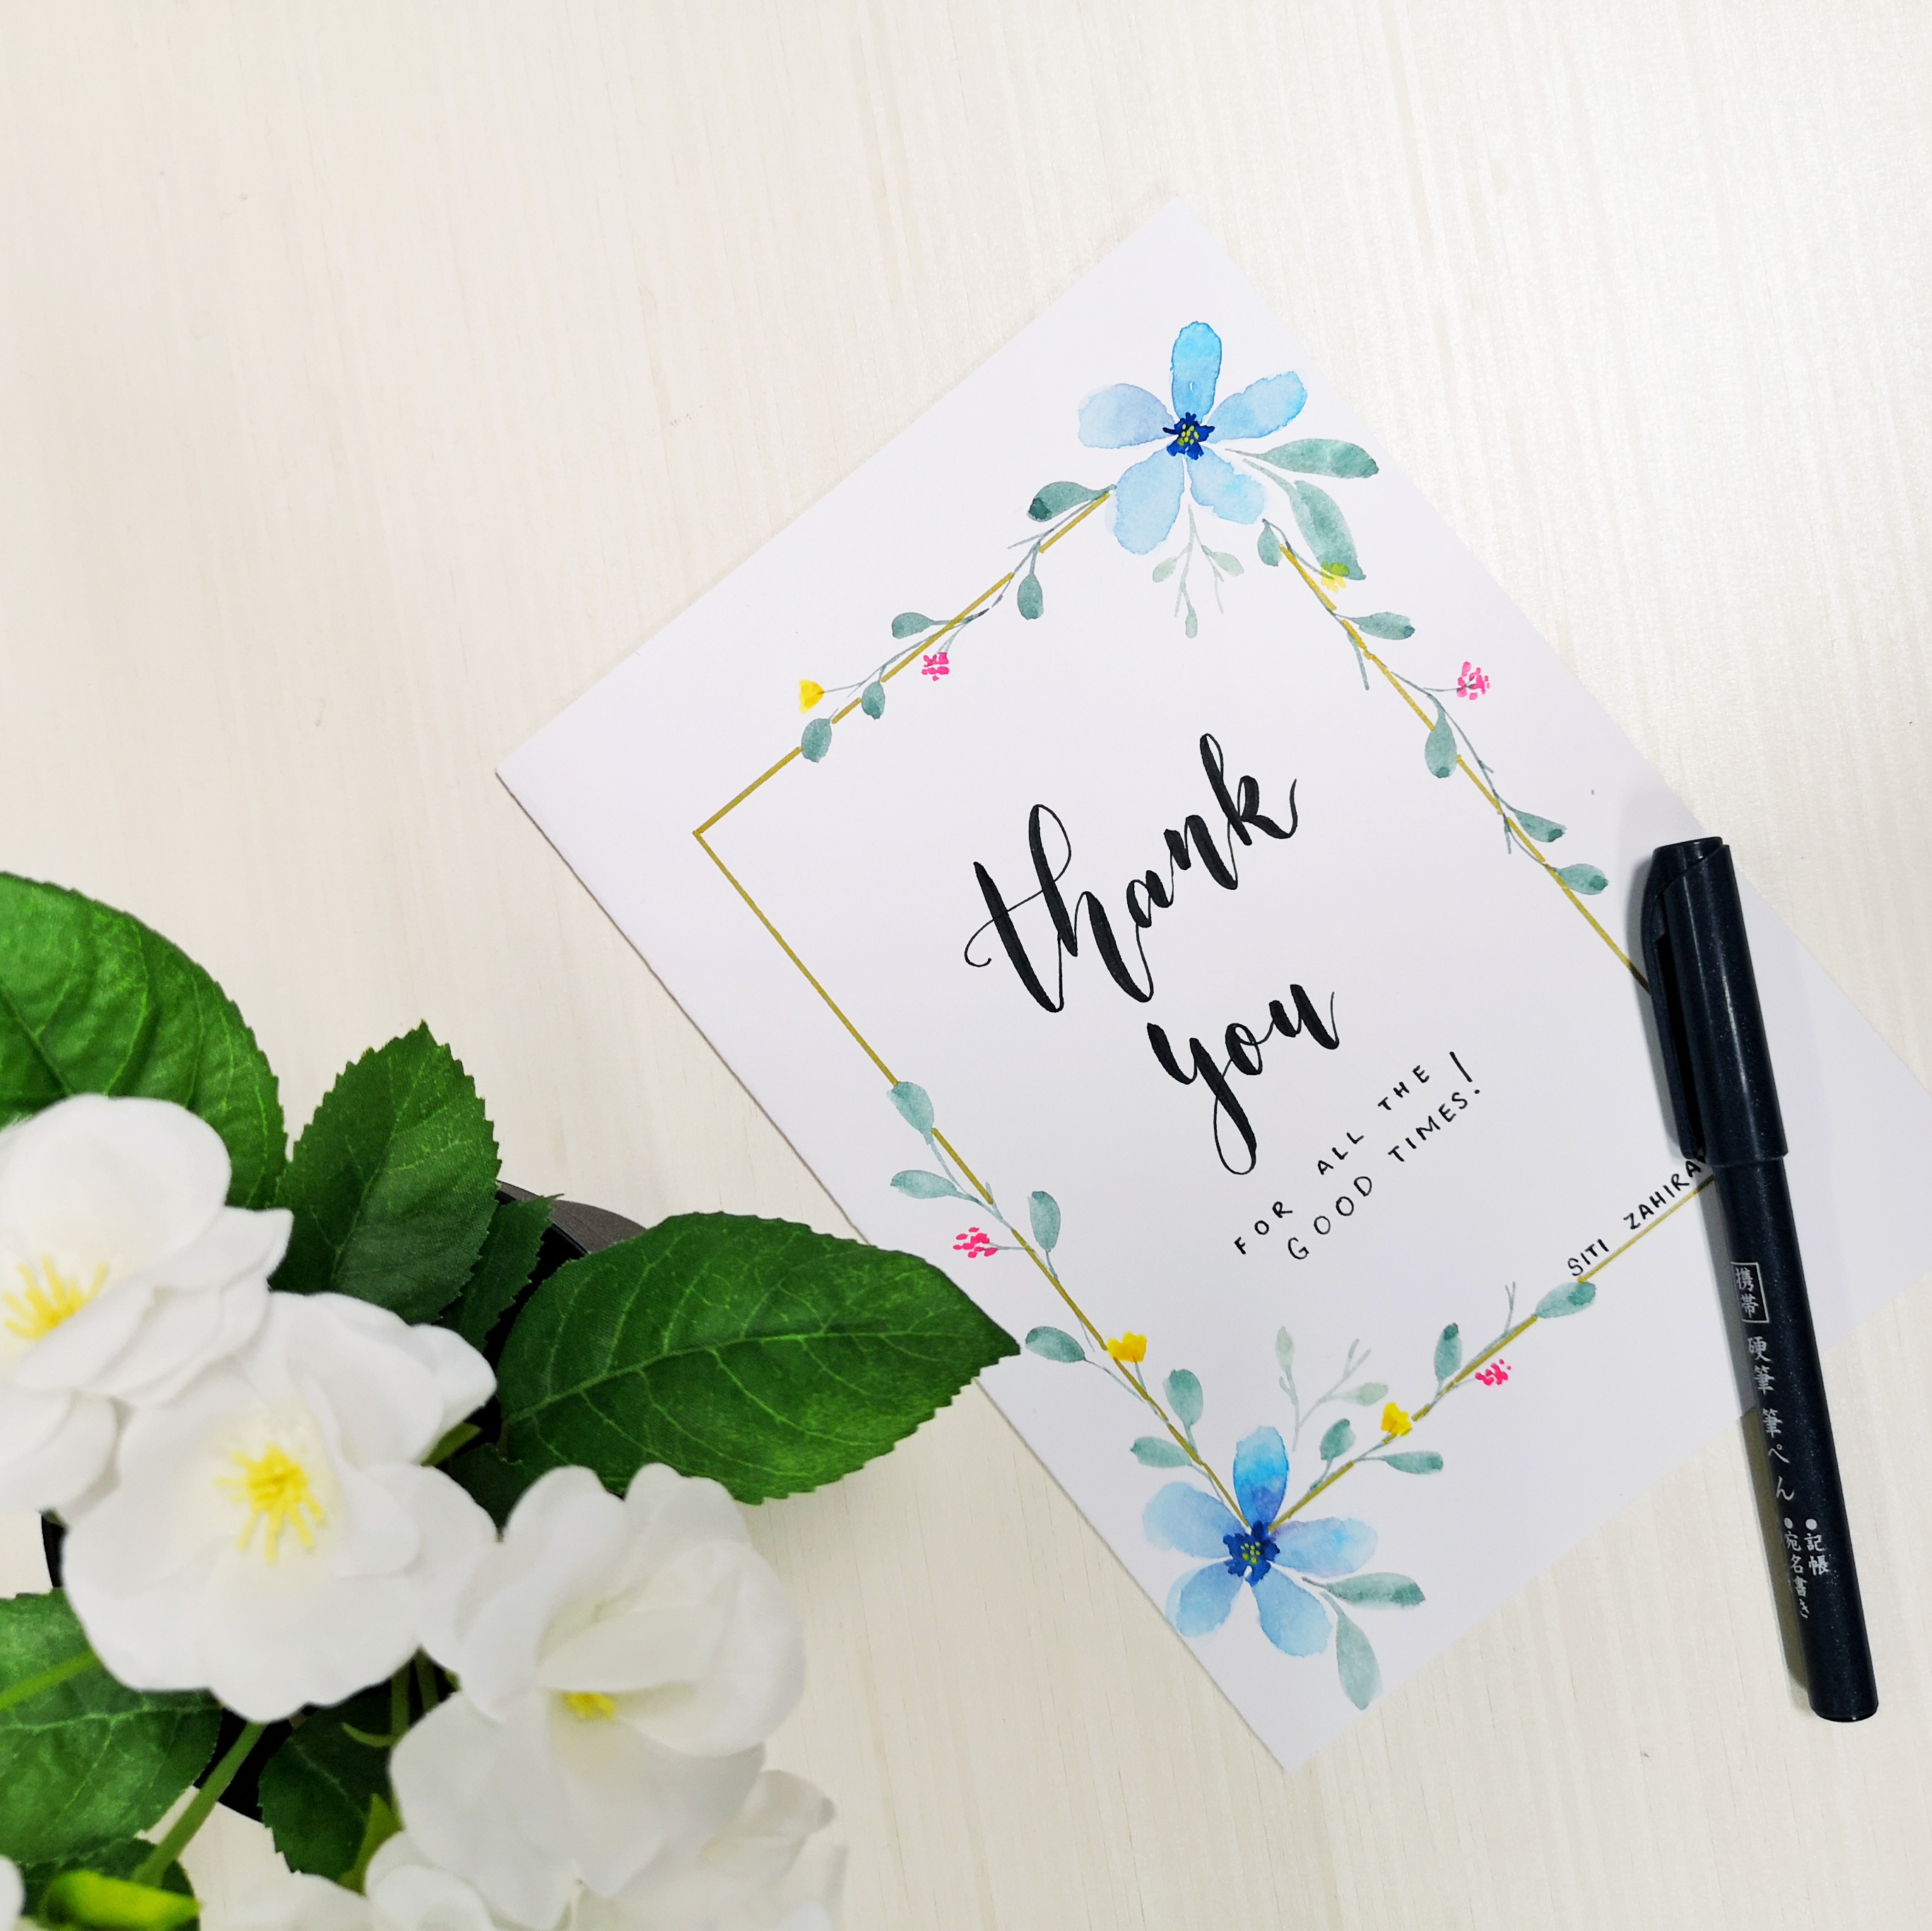 thank
you
FOR ALL THE
GOOD TIMES!
SITI ZAHIRA
携帯
硬筆 筆ぺん
●記帳
●宛名書き